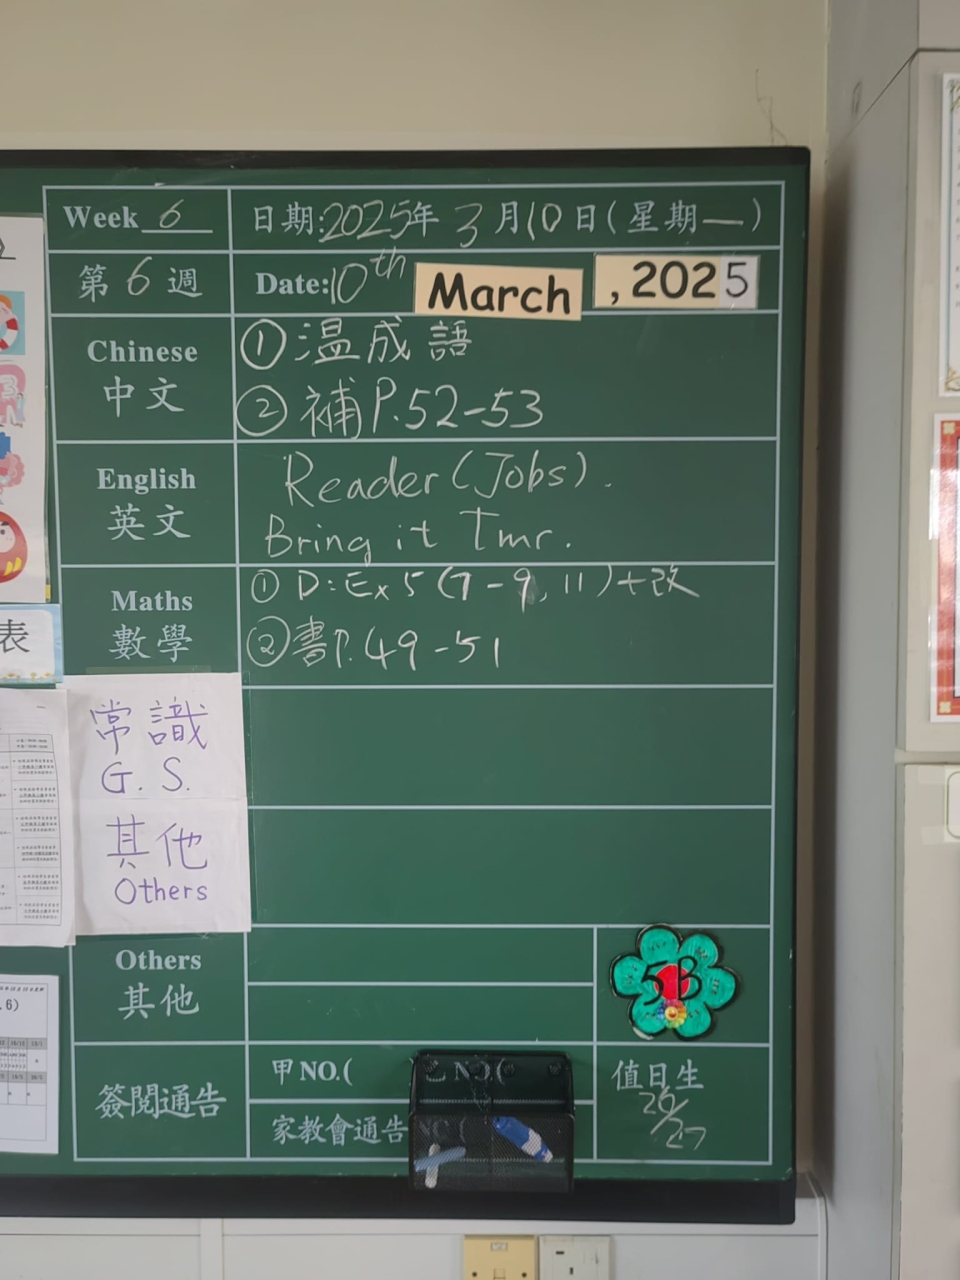 Week 6
日期:2025年 3月10日(星期一)
第6週
Date:10th March, 2025
Chinese
中文
①温成語
②補P.52-53
English
英文
Reader (Jobs).
Bring it Tmr.
Maths
數學
①D:Ex5(7-9,11)+改
②書P.49-51
表
常識
G.S.
其他
Others
Others
其他
5B
簽閱通告
甲NO.(
乙NO.(
家教會通告NO(
值日生
26/27